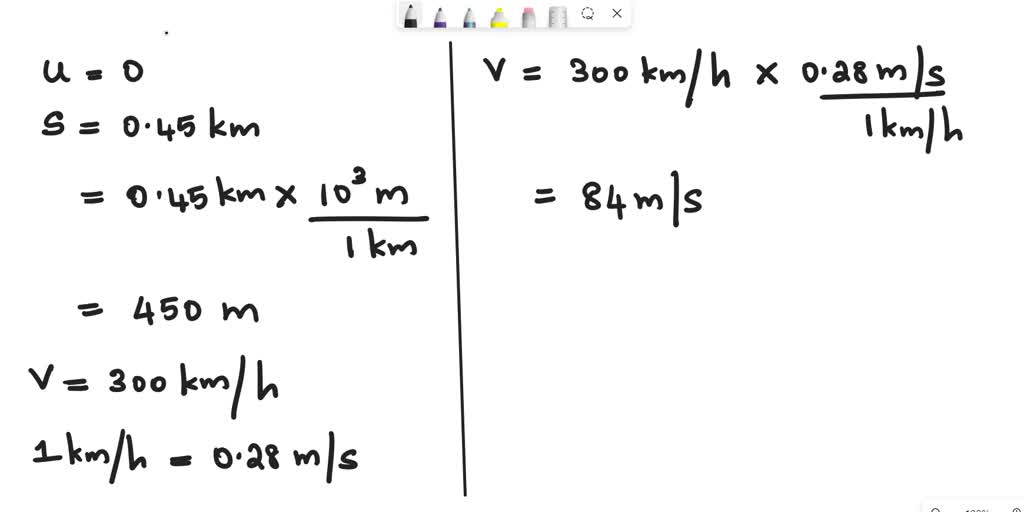 u = 0
S = 0.45 km
= 0.45 km × 10³ m
1 km
= 450 m
V = 300 km/h
1 km/h = 0.28 m/s
V = 300 km/h × 0.28 m/s
1 km/h
= 84 m/s